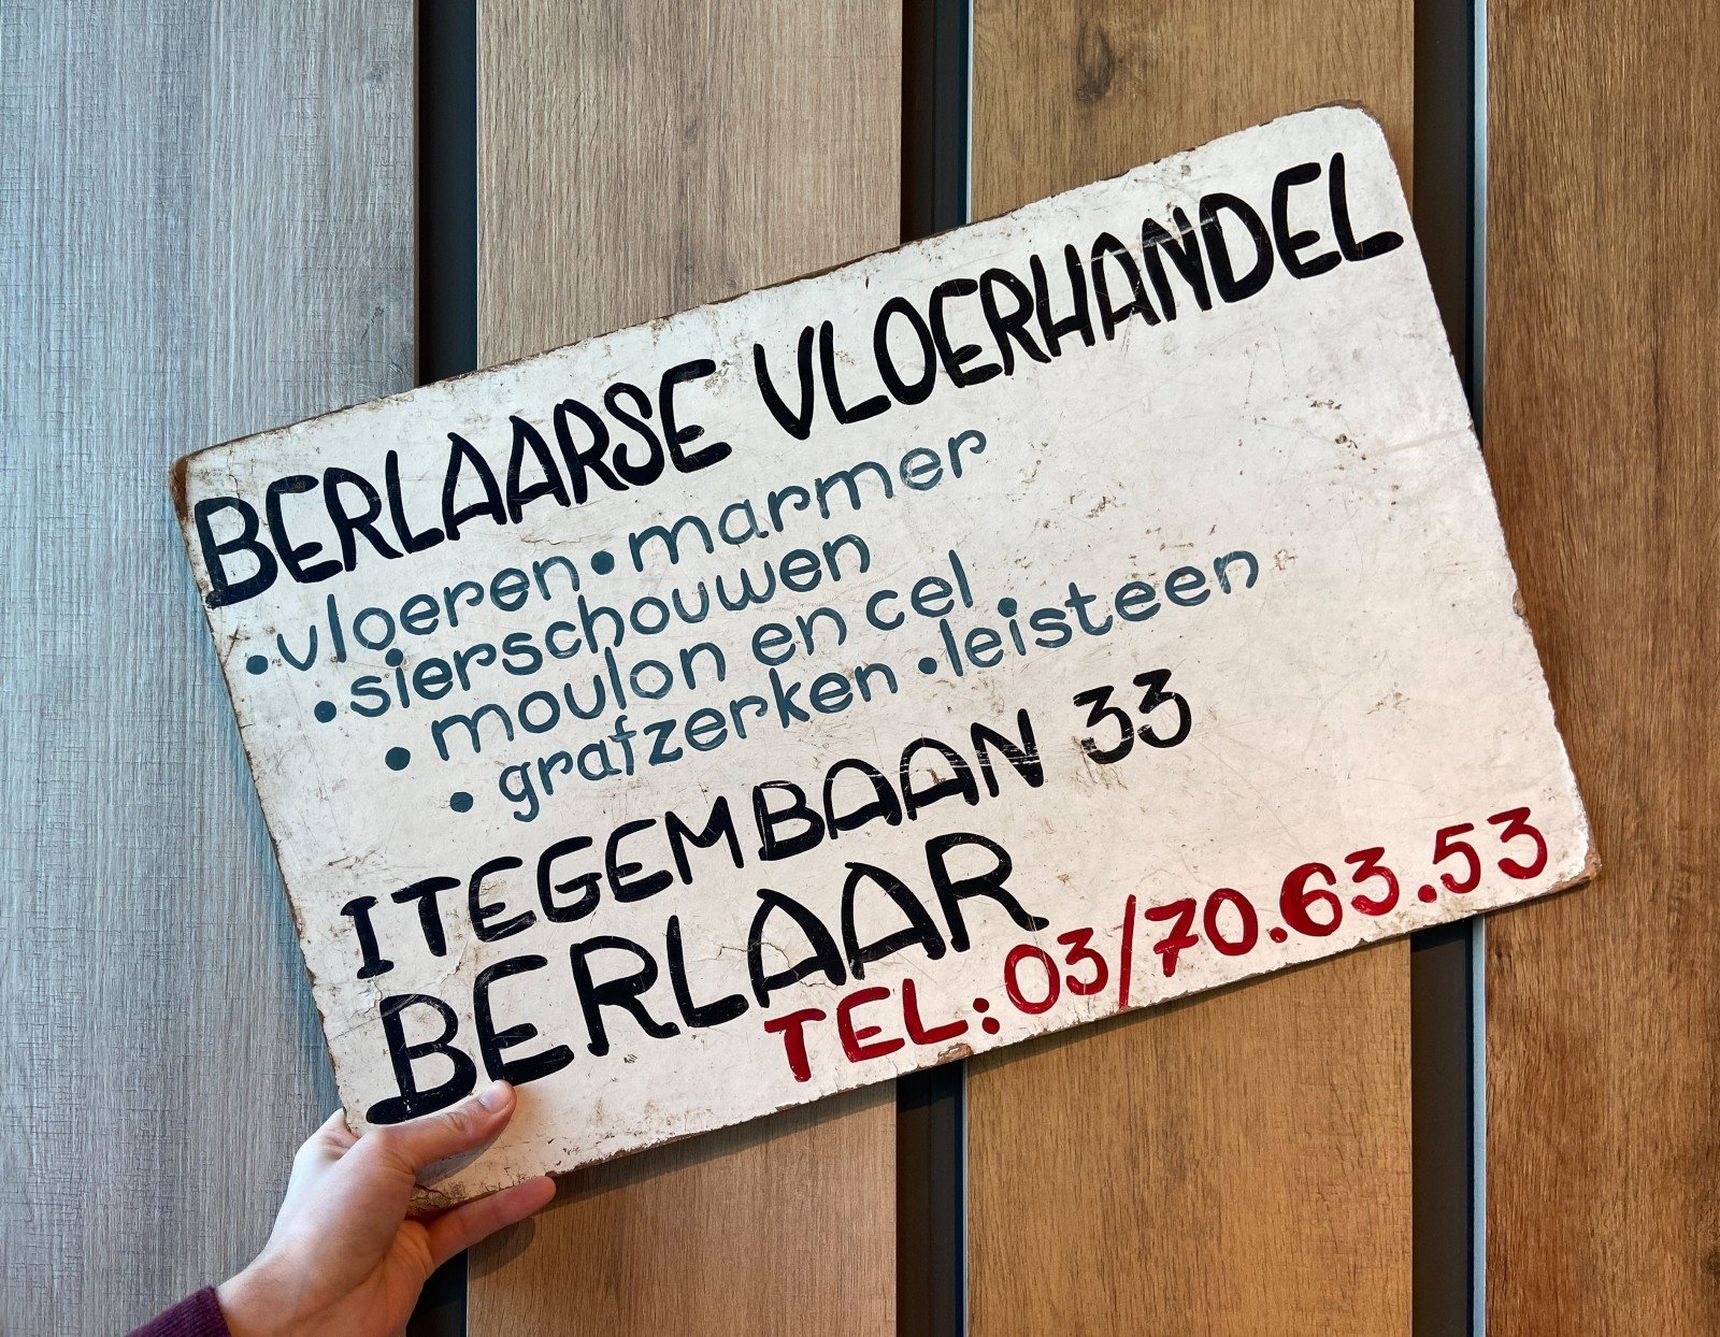 BERLAARSE VLOERHANDEL
•vloeren•marmer
•sierschouwen
•moulon en cel
•grafzerken •leisteen
ITEGEMBAAN 33
BERLAAR
TEL:03/70.63.53